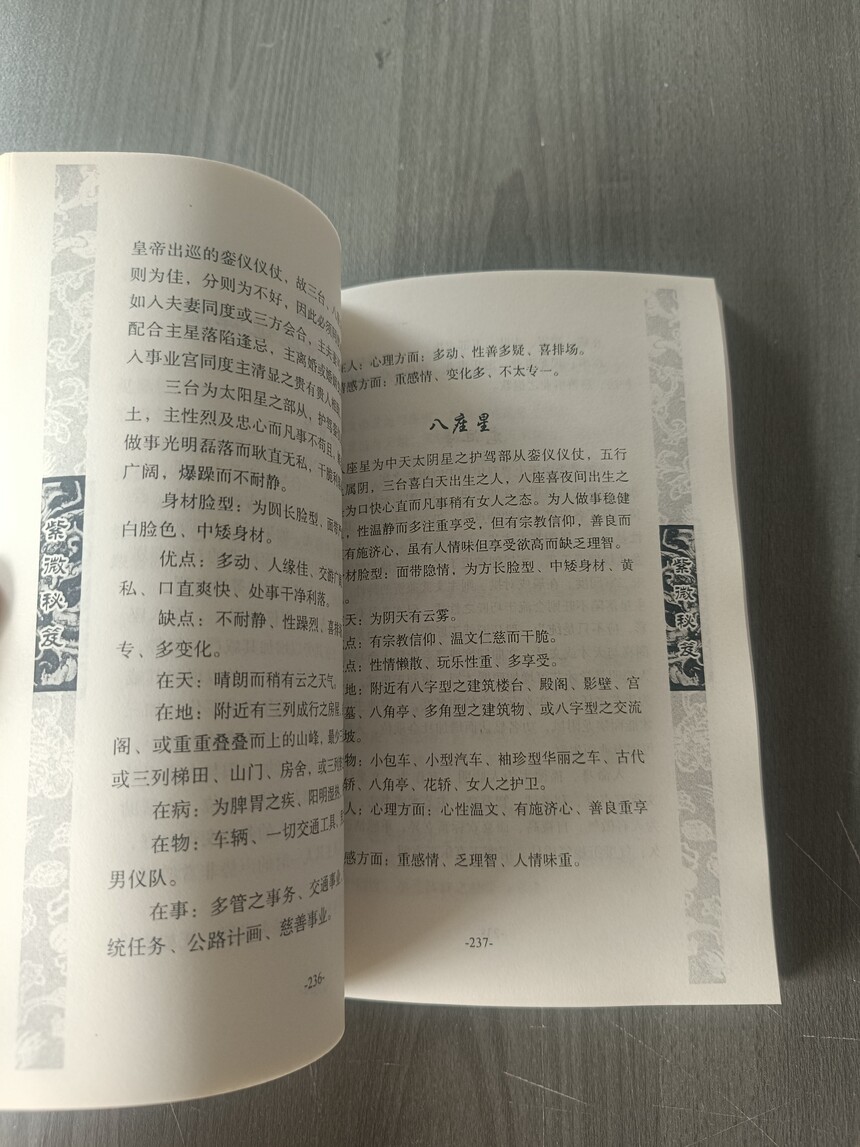 皇帝出巡的銮仪仪仗，故三台、八
则为佳，分则为不好，因此必须
如入夫妻同度或三方会合，主夫妻
配合主星落陷逢忌，主离婚或
入事业宫同度主清显之贵有贵人
三台为太阳星之部从，护驾
土，主性烈及忠心而凡事不苟且，
做事光明磊落而耿直无私，干脆利
广阔，爆躁而不耐静。
身材脸型：为圆长脸型，面带
白脸色、中矮身材。
优点：多动、人缘佳、交游广
私、口直爽快、处事干净利落。
缺点：不耐静、性躁烈，喜排
专、多变化。
在天：晴朗而稍有云之天气。
在地：附近有三列成行之房屋、
阁、或重重叠叠而上的山峰，最少
或三列梯田、山门、房舍，或三列
在病：为脾胃之疾、阳明湿热
在物：车辆、一切交通工具、
男仪队。
在事：多管之事务、交通事业、
统任务、公路计画、慈善事业。
-236-
紫微秘笈
人：心理方面：多动、性善多疑、喜排场。
感方面：重感情、变化多、不太专一。
八座星
座星为中天太阴星之护驾部从銮仪仪仗，五行
属阴，三台喜白天出生之人，八座喜夜间出生之
为口快心直而凡事稍有女人之态。为人做事稳健
，性温静而多注重享受，但有宗教信仰，善良而
有施济心，虽有人情味但享受欲高而缺乏理智。
材脸型：面带隐情，为方长脸型、中矮身材、黄
。
天：为阴天有云雾。
点：有宗教信仰、温文仁慈而干脆。
点：性情懒散、玩乐性重、多享受。
地：附近有八字型之建筑楼台、殿阁、影壁、宫
墓、八角亭、多角型之建筑物、或八字型之交流
坡。
物：小包车、小型汽车、袖珍型华丽之车、古代
轿、八角亭、花轿、女人之护卫。
人：心理方面：心性温文、有施济心、善良重享
感方面：重感情、乏理智、人情味重。
-237-
紫微秘笈